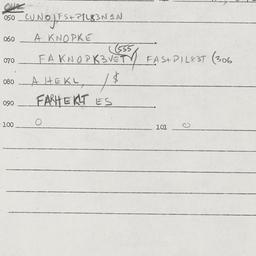 050 CUNO)FS+PIL83N1N
060 A KNOPKE
(555
070 FAKNOPK3VETY/ FAS+PIL83T (306
080 A HEKL, / $
090 FARHEKLT ES
100 O 101 O